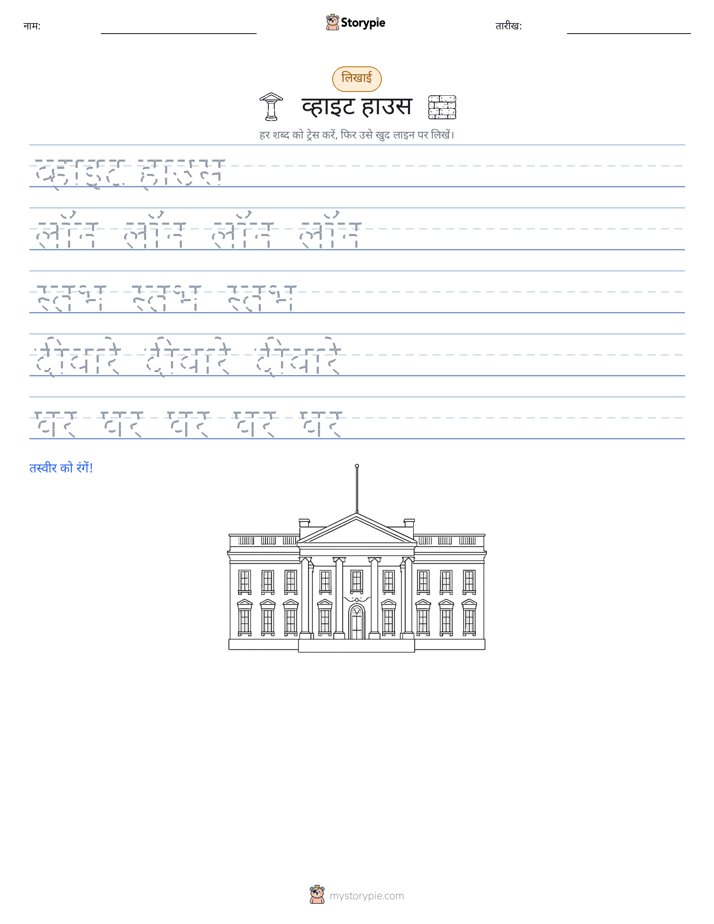 नाम:
Storypie
तारीख:
लिखाई
व्हाइट हाउस
हर शब्द को ट्रेस करें, फिर उसे खुद लाइन पर लिखें।
व्हाइट हाउस
लॉन लॉन लॉन लॉन
स्तंभ स्तंभ स्तंभ
दीवारें दीवारें दीवारें
घर घर घर घर घर
तस्वीर को रंगें!
mystorypie.com